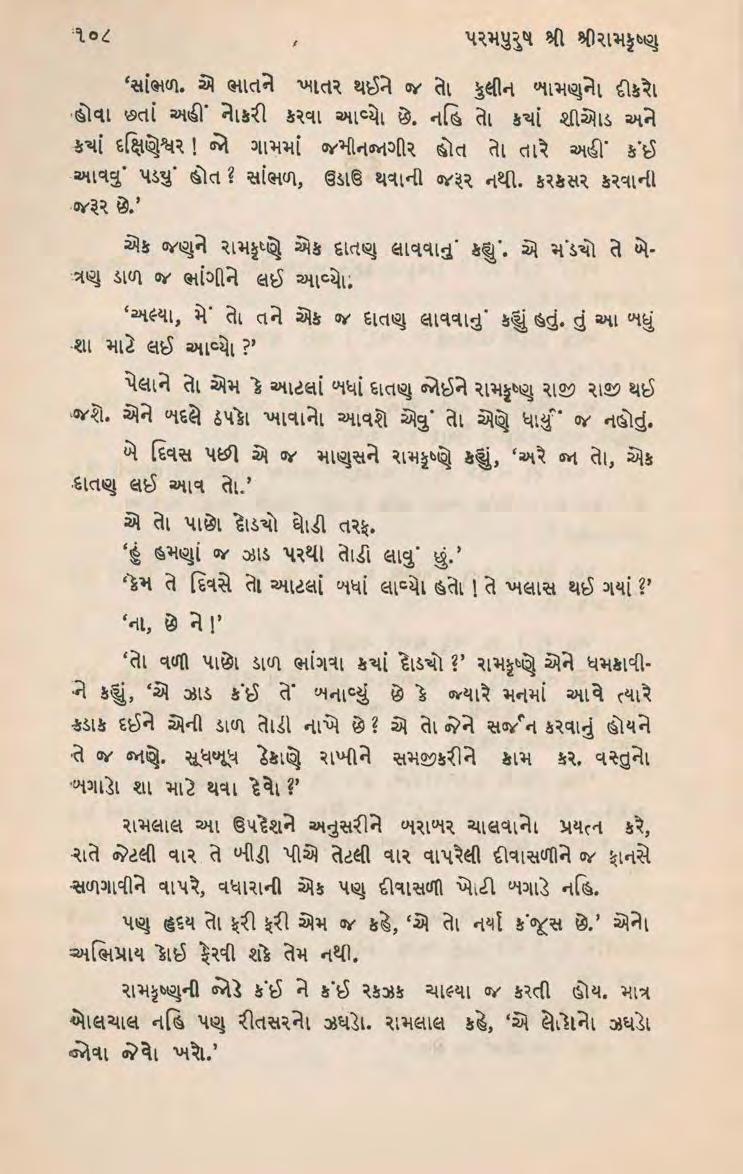 ૧૦૮ પરમપુરુષ શ્રી શ્રીરામકૃષ્ણ
‘સાંભળ. એ ભાતને ખાતર થઈને જ તો કુલીન બામણનો દીકરો
હોવા છતાં અહીં નોકરી કરવા આવ્યો છે. નહિ તો કયાં શીઓડ અને
કયાં દક્ષિણેશ્વર ! જો ગામમાં જમીનજાગીર હોત તો તારે અહીં કંઈ
આવવું પડયું હોત ? સાંભળ, ઉડાઉ થવાની જરૂર નથી. કરકસર કરવાની
જરૂર છે.’
એક જણને રામકૃષ્ણે એક દાતણ લાવવાનું કહ્યું. એ મંડયો તે બે-
ત્રણ ડાળ જ ભાંગીને લઈ આવ્યો:
‘અલ્યા, મેં તો તને એક જ દાતણ લાવવાનું કહ્યું હતું. તું આ બધું
શા માટે લઈ આવ્યો ?’
પેલાને તો એમ કે આટલાં બધાં દાતણ જોઈને રામકૃષ્ણ રાજી રાજી થઈ
જશે. એને બદલે ઠપકો ખાવાનો આવશે એવું તો એણે ધાર્યું જ નહોતું.
બે દિવસ પછી એ જ માણસને રામકૃષ્ણે કહ્યું, ‘અરે જા તો, એક
દાતણ લઈ આવ તો.’
એ તો પાછો દોડયો ઘોડી તરફ.
‘હું હમણાં જ ઝાડ પરથી તોડી લાવું છું.’
‘કેમ તે દિવસે તો આટલાં બધાં લાવ્યો હતો ! તે ખલાસ થઈ ગયાં ?’
‘ના, છે ને !’
‘તો વળી પાછો ડાળ ભાંગવા કયાં દોડયો ?’ રામકૃષ્ણે એને ધમકાવી-
ને કહ્યું, ‘એ ઝાડ કંઈ તેં બનાવ્યું છે કે જ્યારે મનમાં આવે ત્યારે
કડાક દઈને એની ડાળ તોડી નાખે છે ? એ તો જેને સર્જન કરવાનું હોયને
તે જ જાણે. સૂધબૂધ ઠેકાણે રાખીને સમજીકરીને કામ કર. વસ્તુનો
બગાડો શા માટે થવા દેવો ?’
રામલાલ આ ઉપદેશને અનુસરીને બરાબર ચાલવાનો પ્રયત્ન કરે,
રાતે જેટલી વાર તે બીડી પીએ તેટલી વાર વાપરેલી દીવાસળીને જ ફાનસે
સળગાવીને વાપરે, વધારાની એક પણ દીવાસળી ખોટી બગાડે નહિ.
પણ હૃદય તો ફરી ફરી એમ જ કહે, ‘એ તો નર્યા કંજૂસ છે.’ એનો
અભિપ્રાય કોઈ ફેરવી શકે તેમ નથી.
રામકૃષ્ણની જોડે કંઈ ને કંઈ રકઝક ચાલ્યા જ કરતી હોય. માત્ર
બોલચાલ નહિ પણ રીતસરનો ઝઘડો. રામલાલ કહે, ‘એ લોકોનો ઝઘડો
જોવા જેવો ખરો.’